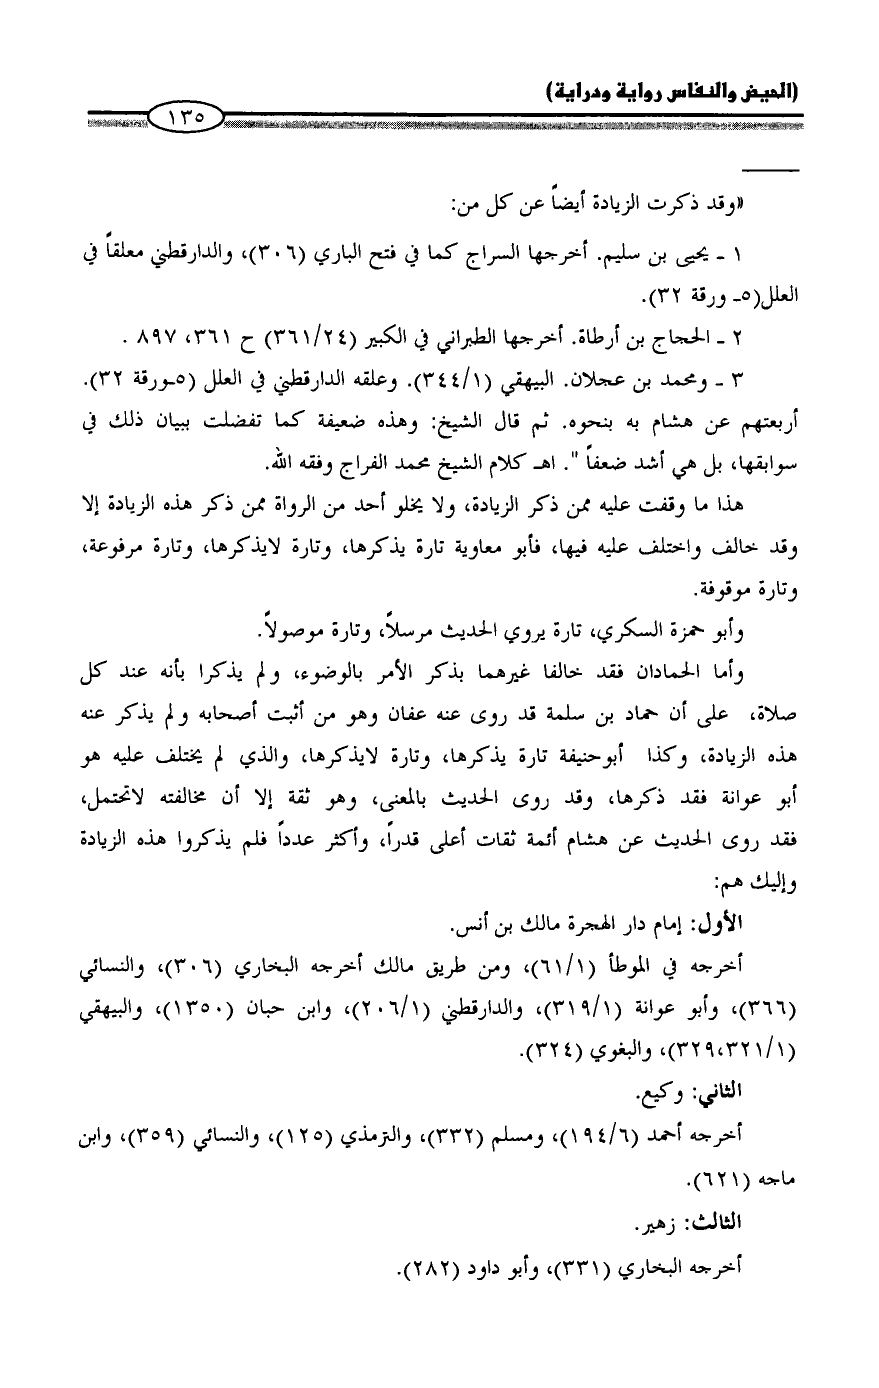 (الحيض والنفاس رواية ودراية)
١٣٥
«وقد ذكرت الزيادة أيضاً عن كل من:
١ - يحيى بن سليم. أخرجها السراج كما في فتح الباري (٣٠٦)، والدارقطني معلقاً في
العلل(٥- ورقة ٣٢).
٢ - الحجاج بن أرطاة. أخرجها الطبراني في الكبير (٣٦١/٢٤) ح ٣٦١، ٨٩٧ .
٣ - ومحمد بن عجلان. البيهقي (٣٤٤/١). وعلقه الدارقطني في العلل (٥-ورقة ٣٢).
أربعتهم عن هشام به بنحوه. ثم قال الشيخ: وهذه ضعيفة كما تفضلت ببيان ذلك في
سوابقها، بل هي أشد ضعفاً ". اهـ كلام الشيخ محمد الفراج وفقه الله.
هذا ما وقفت عليه ممن ذكر الزيادة، ولا يخلو أحد من الرواة ممن ذكر هذه الزيادة إلا
وقد خالف واختلف عليه فيها، فأبو معاوية تارة يذكرها، وتارة لايذكرها، وتارة مرفوعة،
وتارة موقوفة.
وأبو حمزة السكري، تارة يروي الحديث مرسلاً، وتارة موصولاً.
وأما الحمادان فقد خالفا غيرهما بذكر الأمر بالوضوء، ولم يذكرا بأنه عند كل
صلاة، على أن حماد بن سلمة قد روى عنه عفان وهو من أثبت أصحابه ولم يذكر عنه
هذه الزيادة، وكذا أبوحنيفة تارة يذكرها، وتارة لايذكرها، والذي لم يختلف عليه هو
أبو عوانة فقد ذكرها، وقد روى الحديث بالمعنى، وهو ثقة إلا أن مخالفته لاتحتمل،
فقد روى الحديث عن هشام أئمة ثقات أعلى قدراً، وأكثر عدداً فلم يذكروا هذه الزيادة
وإليك هم:
الأول: إمام دار الهجرة مالك بن أنس.
أخرجه في الموطأ (٦١/١)، ومن طريق مالك أخرجه البخاري (٣٠٦)، والنسائي
(٣٦٦)، وأبو عوانة (٣١٩/١)، والدارقطني (٢٠٦/١)، وابن حبان (١٣٥٠)، والبيهقي
(٣٢٩،٣٢١/١)، والبغوي (٣٢٤).
الثاني: وكيع.
أخرجه أحمد (١٩٤/٦)، ومسلم (٣٣٢)، والترمذي (١٢٥)، والنسائي (٣٥٩)، وابن
ماجه (٦٢١).
الثالث: زهير.
أخرجه البخاري (٣٣١)، وأبو داود (٢٨٢).